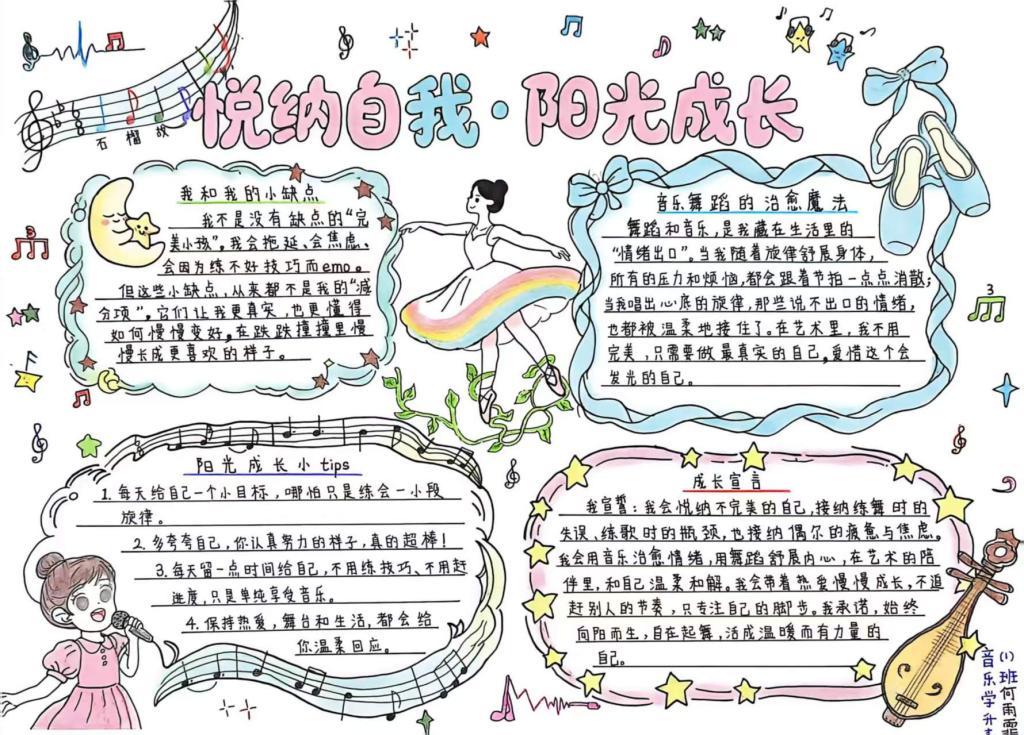 悦纳自我·阳光成长
石榴故
我和我的小缺点
我不是没有缺点的“完
美小孩”。我会拖延、会焦虑、
会因为练不好技巧而emo。
但这些小缺点，从来都不是我的“减
分项”。它们让我更真实，也更懂得
如何慢慢变好。在跌跌撞撞里慢
慢长成更喜欢的样子。
音乐舞蹈的治愈魔法
舞蹈和音乐，是我藏在生活里的
“情绪出口”。当我随着旋律舒展身体，
所有的压力和烦恼，都会跟着节拍一点点消散；
当我唱出心底的旋律，那些说不出口的情绪，
也都被温柔地接住了。在艺术里，我不用
完美，只需要做最真实的自己，爱惜这个会
发光的自己。
阳光成长小tips
1. 每天给自己一个小目标，哪怕只是练会一小段
旋律。
2. 多夸夸自己，你认真努力的样子，真的超棒！
3. 每天留一点时间给自己，不用练技巧、不用赶
进度，只是单纯享受音乐。
4. 保持热爱，舞台和生活，都会给
你温柔回应。
成长宣言
我宣誓：我会悦纳不完美的自己，接纳练舞时的
失误、练歌时的瓶颈，也接纳偶尔的疲惫与焦虑。
我会用音乐治愈情绪，用舞蹈舒展内心，在艺术的陪
伴里，和自己温柔和解。我会带着热爱慢慢成长，不追
赶别人的节奏，只专注自己的脚步。我承诺，始终
向阳而生，自在起舞，活成温暖而有力量的
自己。
3
3
音乐学升
(1)班何雨霏